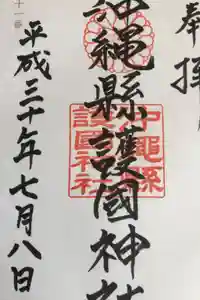 奉拝
沖縄縣護國神社
沖縄縣
護國神社
平成三十年七月八日